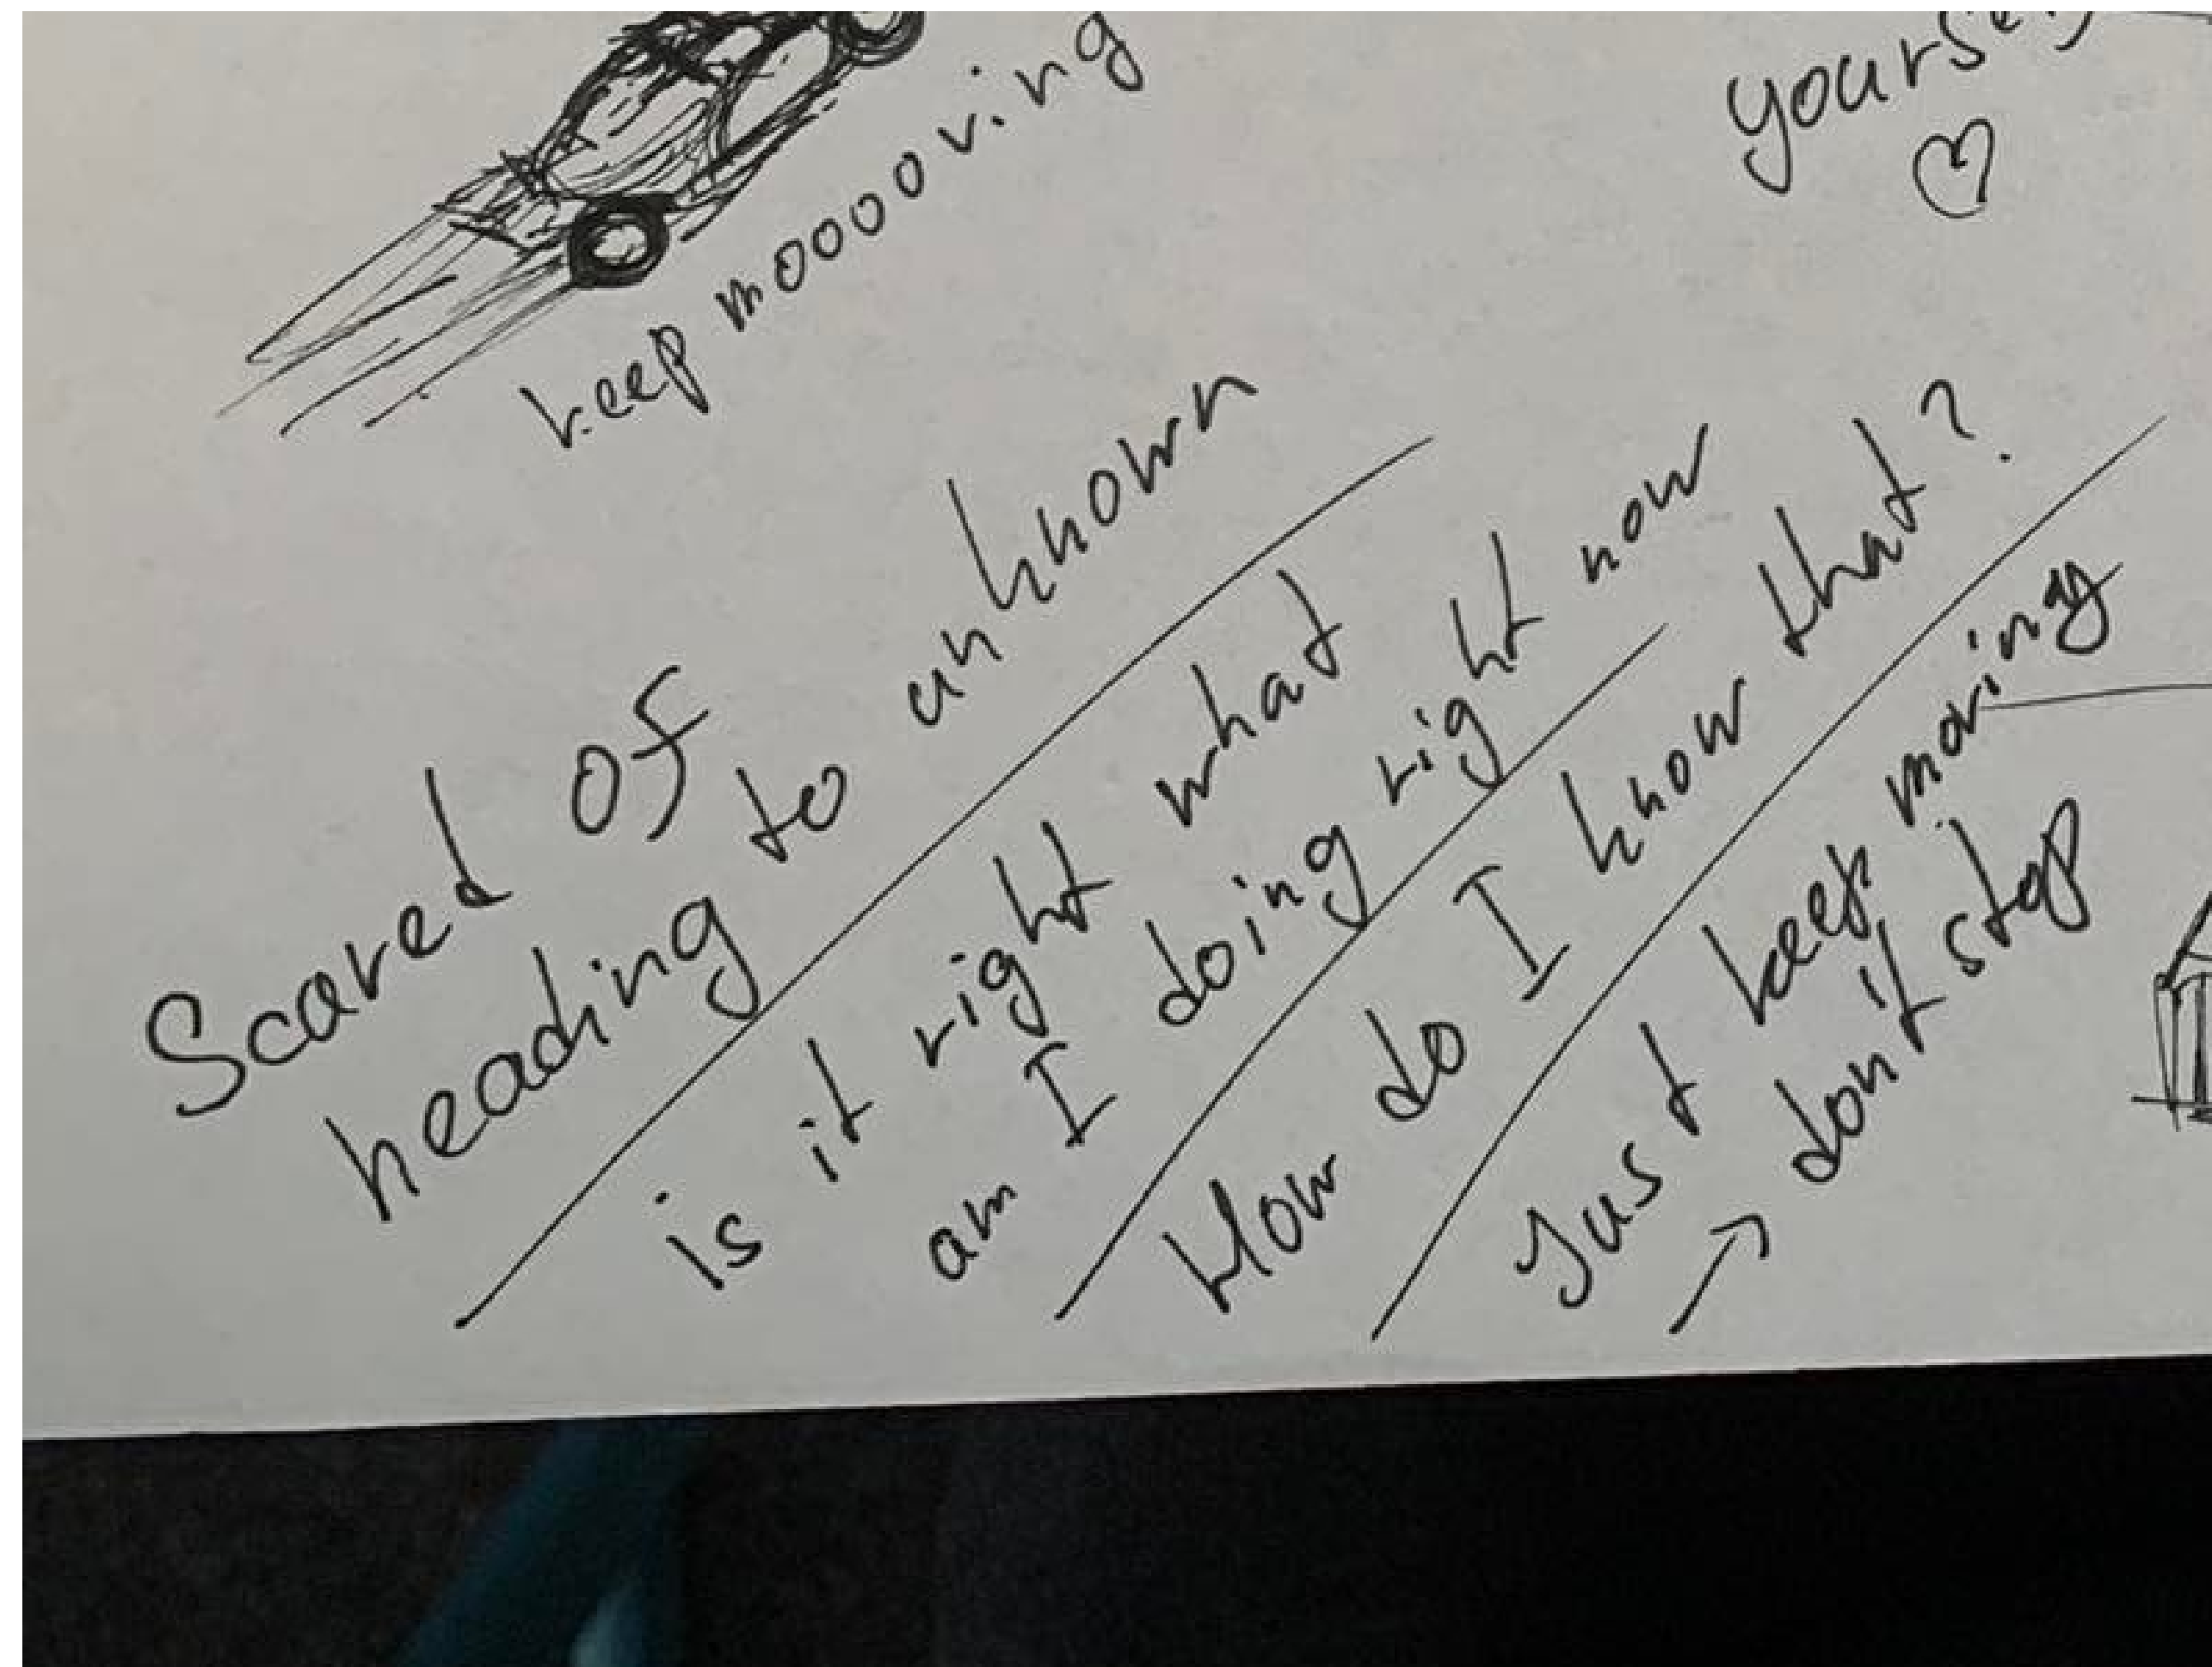 keep mooooving
Scared of
heading to unknown
is it right what
am I doing right now
How do I know that?
Just keep moving
→ don't stop